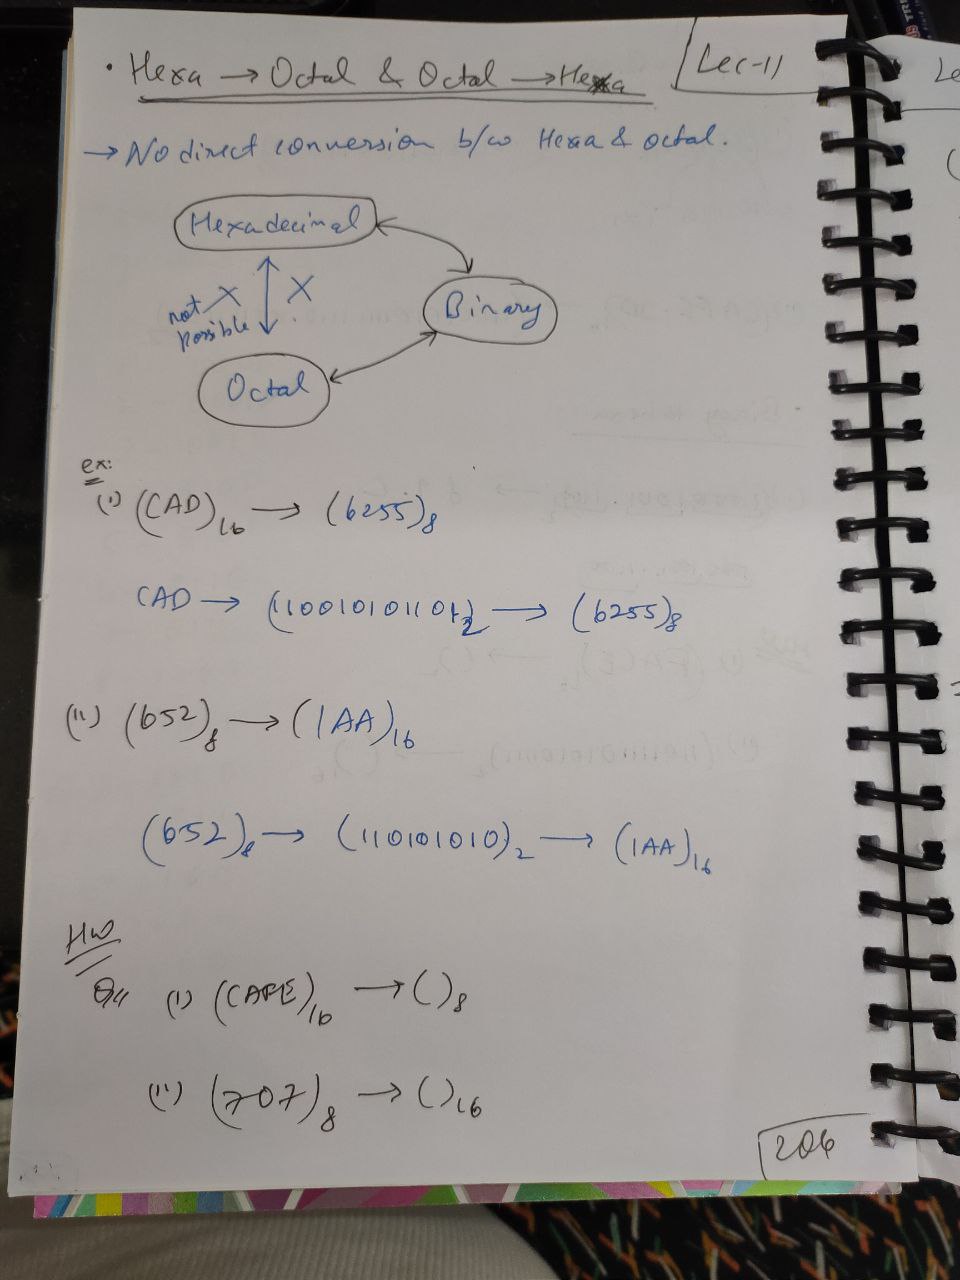 Lec-11
• Hexa → Octal & Octal → Hexa
→ No direct conversion b/w Hexa & octal.
Hexadecimal
not possible
Binary
Octal
ex:
(i) (CAD)16 → (6255)8
CAD → (110010101101)2 → (6255)8
(ii) (652)8 → (1AA)16
(652)8 → (110101010)2 → (1AA)16
HW
Q4 (i) (CAFE)16 → ( )8
(ii) (707)8 → ( )16
206